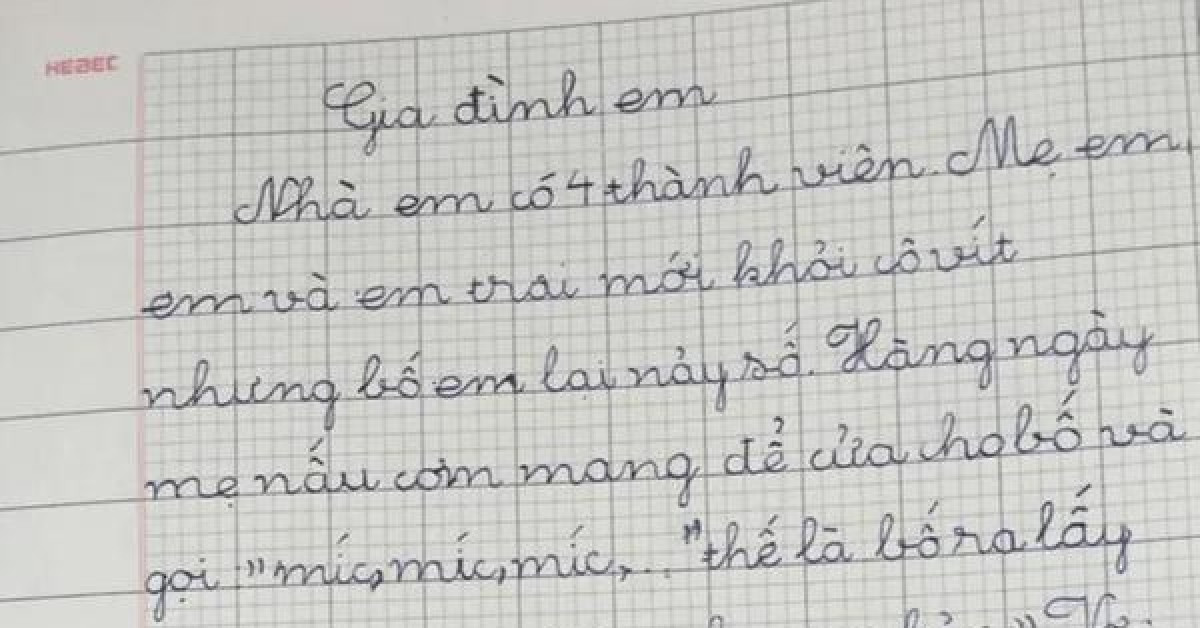 HEBEC
Gia đình em
Nhà em có 4 thành viên. Mẹ em,
em và em trai mới khỏi cô vít
nhưng bố em lại nảy số. Hàng ngày
mẹ nấu cơm mang để cửa cho bố và
gọi "míc, míc, míc,... "thế là bố ra lấy